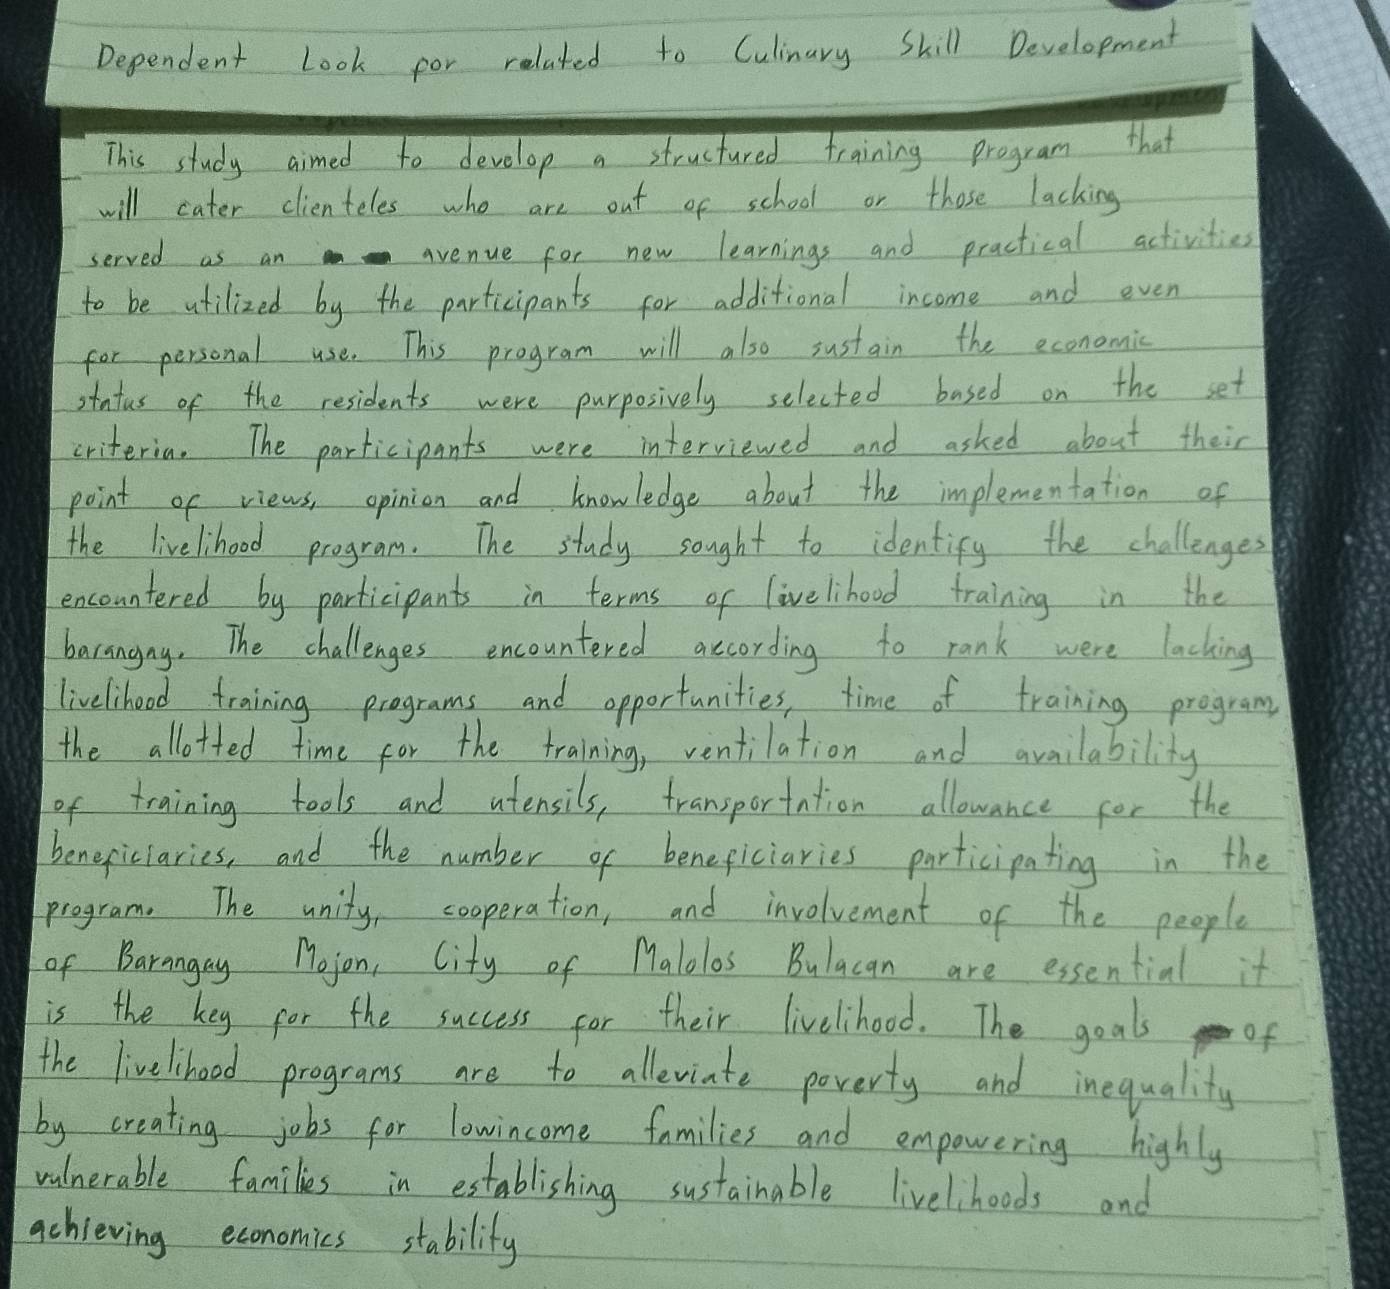 Dependent Look for related to Culinary Skill Development
This study aimed to develop a structured training program that
will cater clienteles who are out of school or those lacking
served as an avenue for new learnings and practical activities
to be utilized by the participants for additional income and even
for personal use. This program will also sustain the economic
status of the residents were purposively selected based on the set
criteria. The participants were interviewed and asked about their
point of views, opinion and knowledge about the implementation of
the livelihood program. The study sought to identify the challenges
encountered by participants in terms of livelihood training in the
barangay. The challenges encountered according to rank were lacking
livelihood training programs and opportunities, time of training program,
the allotted time for the training, ventilation and availability
of training tools and utensils, transportation allowance for the
beneficiaries, and the number of beneficiaries participating in the
program. The unity, cooperation, and involvement of the people
of Barangay Mojon, City of Malolos Bulacan are essential it
is the key for the success for their livelihood. The goals of
the livelihood programs are to alleviate poverty and inequality
by creating jobs for lowincome families and empowering highly
vulnerable families in establishing sustainable livelihoods and
achieving economics stability